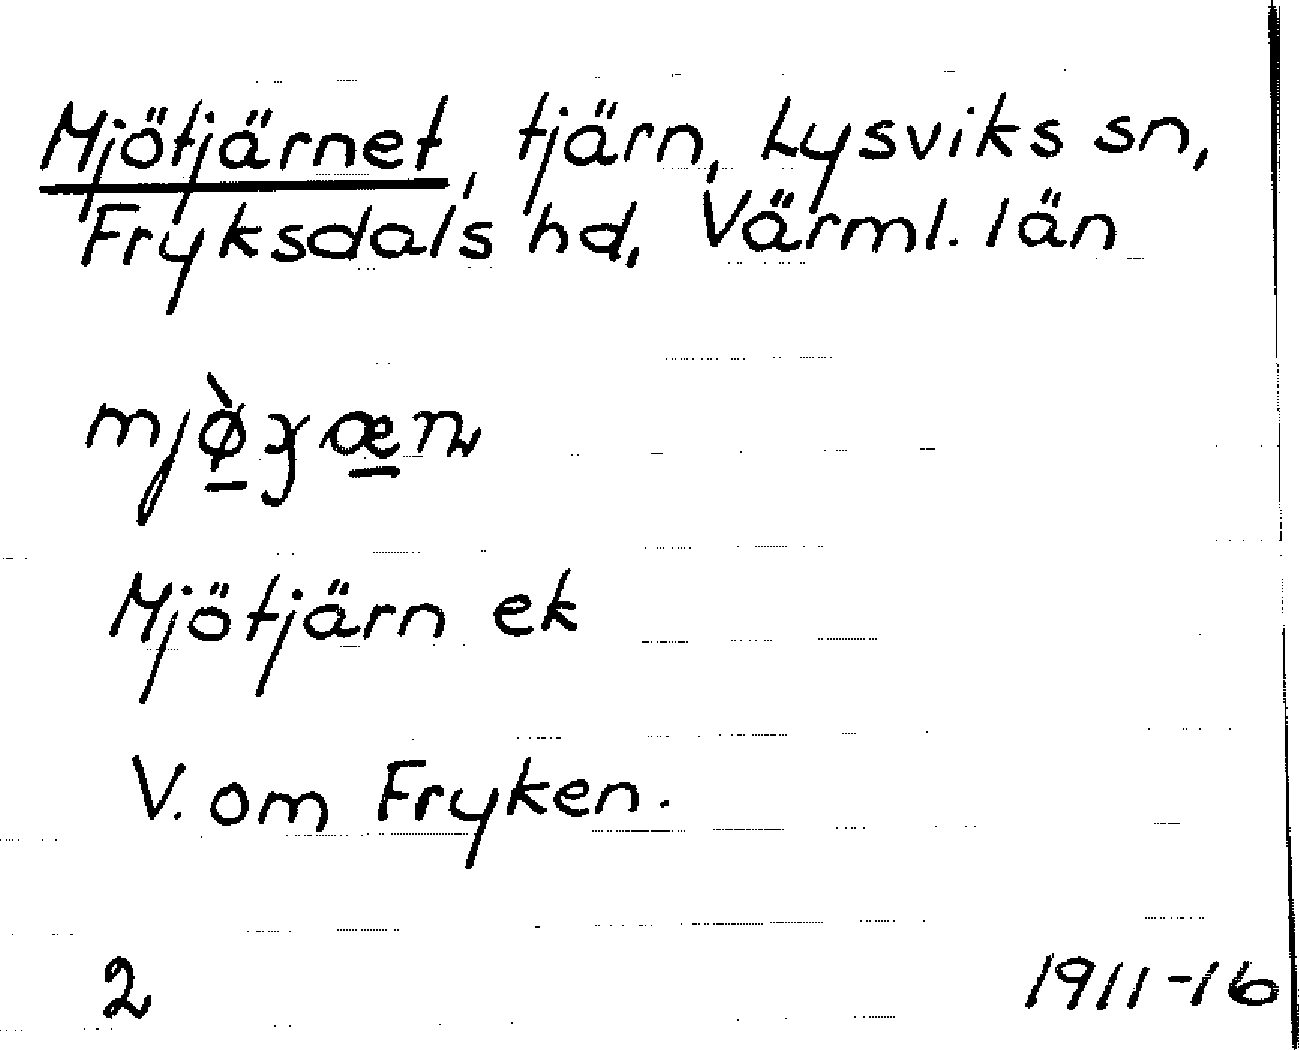 Mjötjärnet, tjärn, Lysviks sn,
Fryksdals hd, Värml. län
Mjötjärn ek
V. om Fryken.
2
1911-16